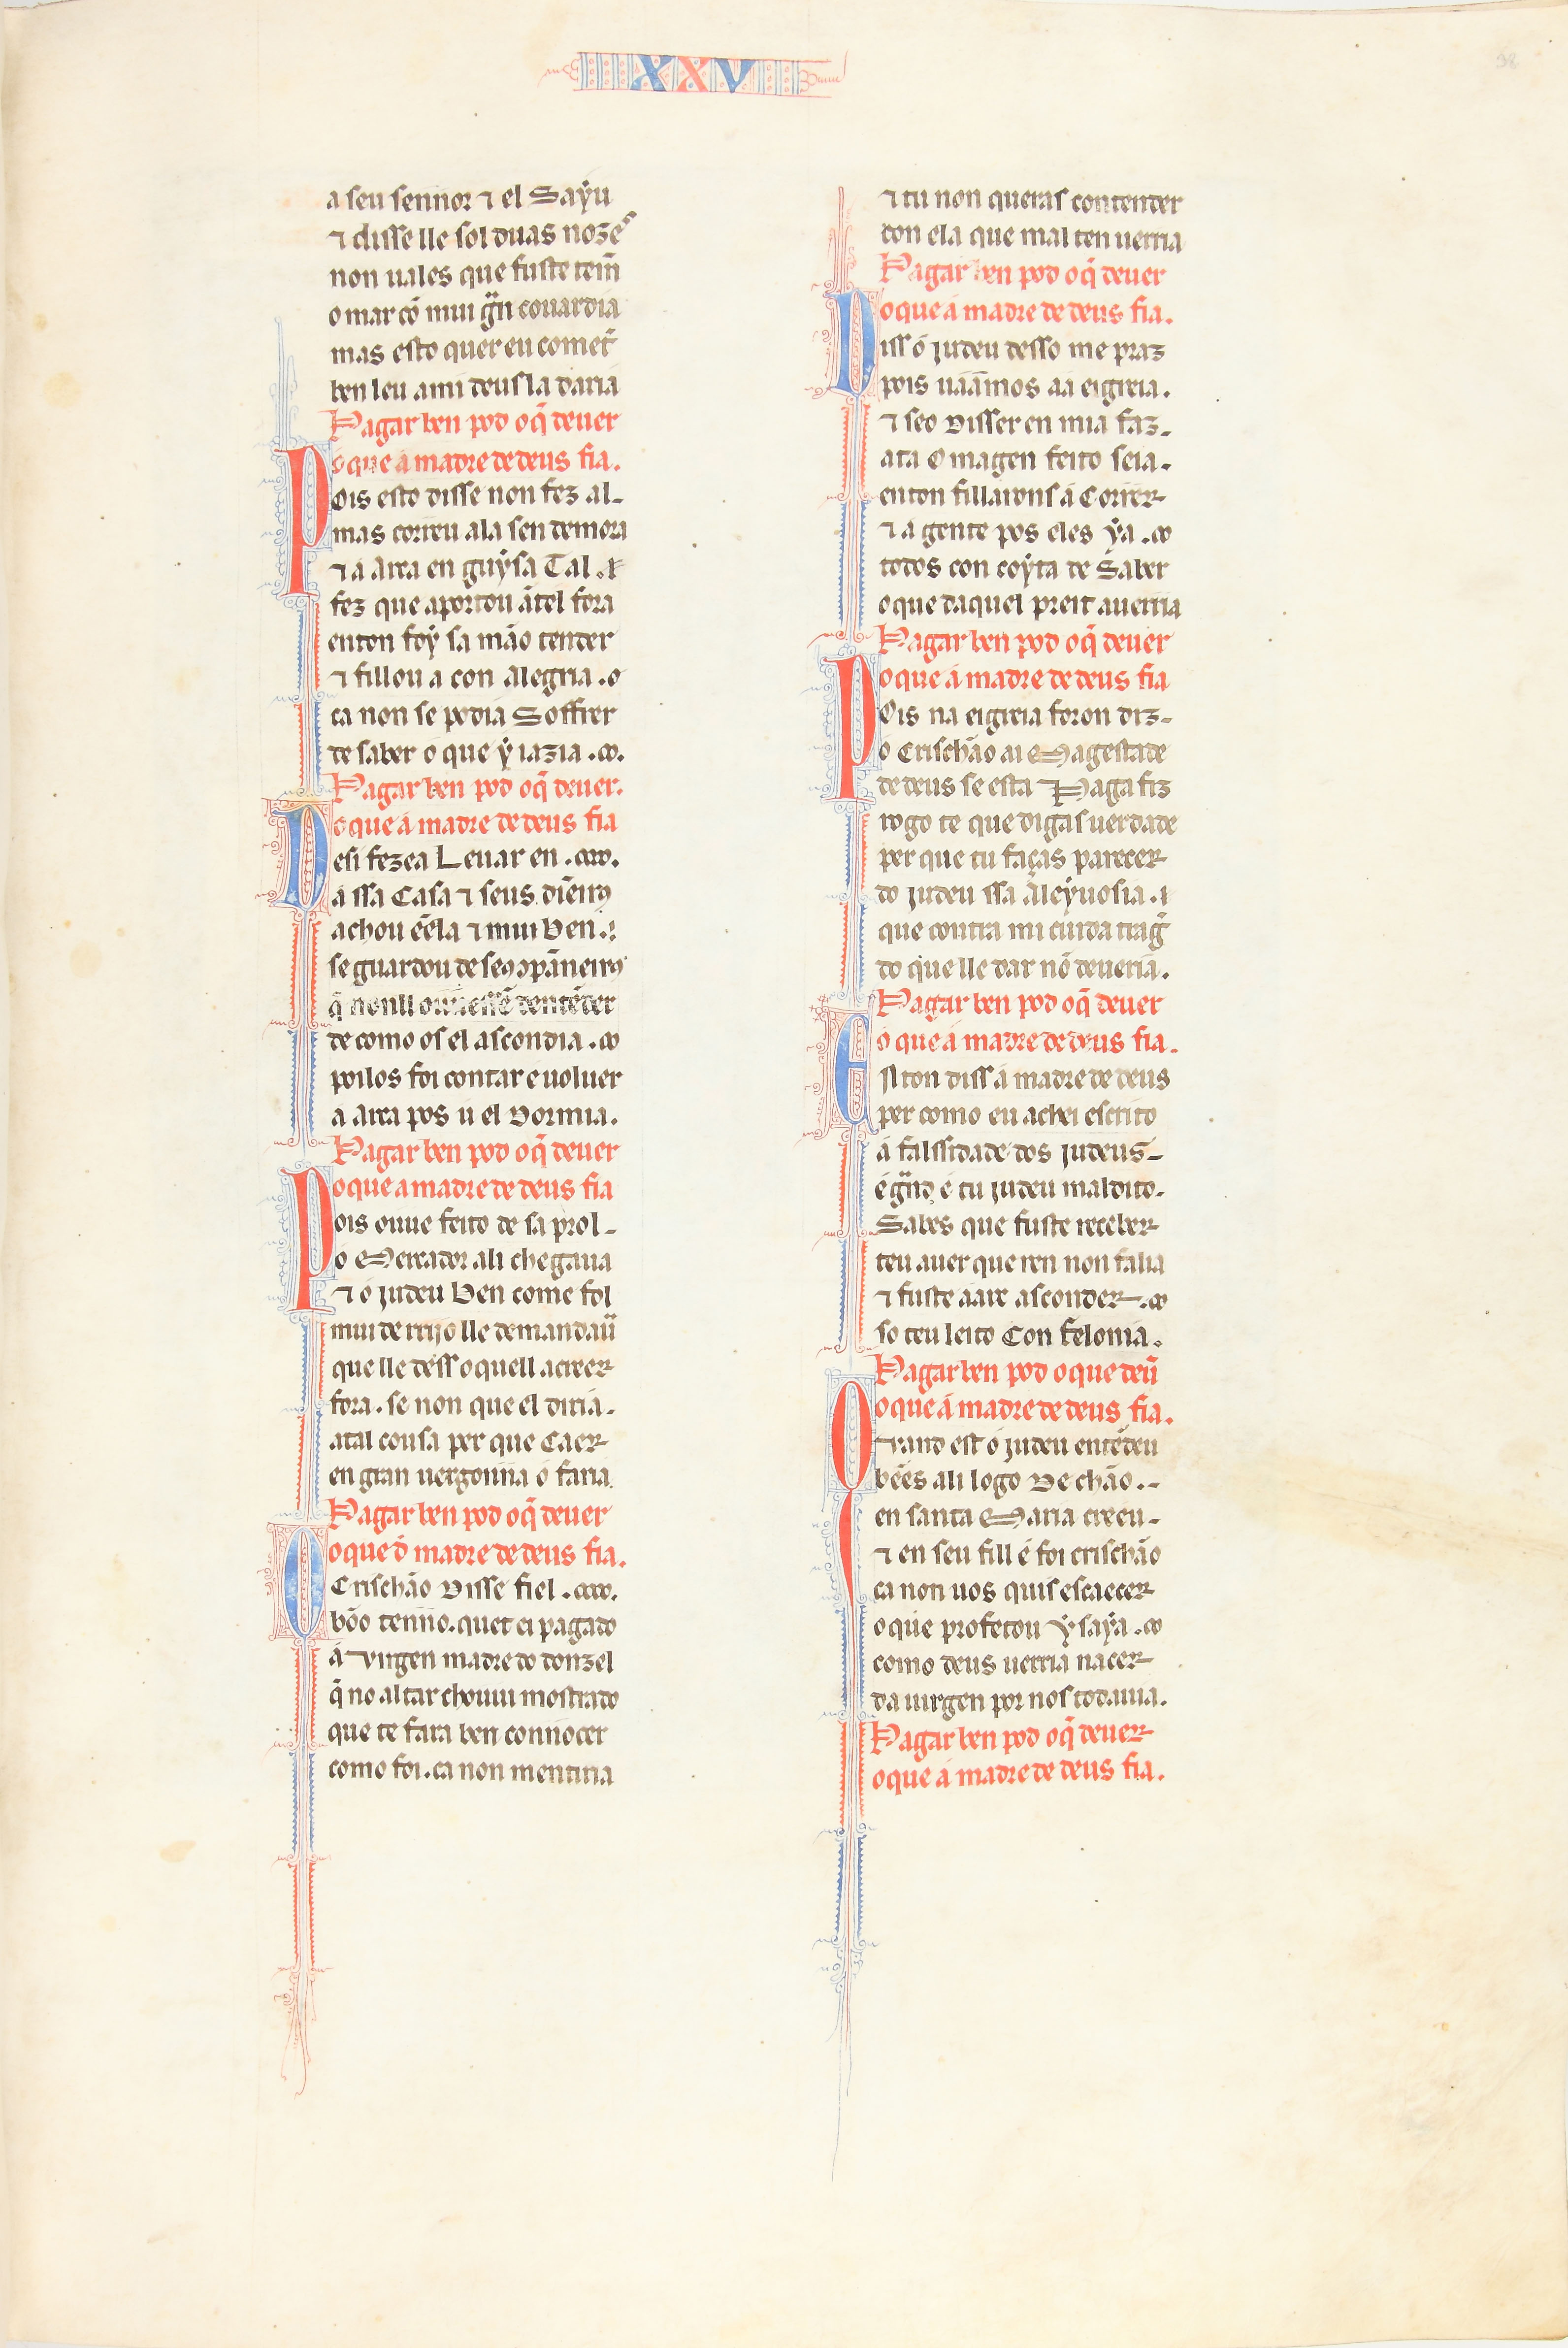 XXV
38
a seu sennor ⁊ el Sayu
⁊ disse lle sol duas nozes
non uales que fuste tem̃
o mar cõ mui gñ couardia
mas esto quer eu comet̃
ben leu a mi deus la daria
Pagar ben pod o q̃ deuer
o que á madre de deus fia.
Pois esto disse non fez al-
mas correu ala sen demora
⁊ a arca en guẏsa Tal.
fez que aportou ãtel fora
enton foẏ sa mão tender
⁊ fillou a con Alegria.
ca non se podia Soffrer
de saber o que ẏ iazia.
Pagar ben pod o q̃ deuer.
o que á madre de deus fia
Desi fezea Leuar en.
á ssa Casa ⁊ seus dĩeiros
achou ẽela ⁊ mui Ven.
se guardou de seos conpãneiros
q̃ nonll ouuessẽ dentẽder
de como os el ascondia.
poilos foi contar e uoluer
a arca pos u el dormia.
Pagar ben pod o q̃ deuer
o que a madre de deus fia
Pois ouue feito de sa prol-
o Mercador ali chegaua
⁊ ó judeu Ven come fol
mui de rrijo lle demandaũ
que lle déss o quell acreer
fora. se non que el diria.
atal cousa per que Caer
en gran uergonna ó faria
Pagar ben pod o q̃ deuer
o que á madre de deus fia.
O Crischão disse fiel.
bõo tenno. quet ei pagado
á uirgen madre do donzel
q̃ no altar chouuu mostrado
que te fara ben connocer
como foi. ca non mentiria
⁊ tu non queras contender
con ela que mal ten uerria
Pagar ben pod o q̃ deuer
o que á madre de deus fia.
Diss ó judeu desso me praz
pois uáámos aa eigreia.
⁊ seo disser en mia faz.
ata Omagen feito seia.
enton fillarons á Correr
⁊ a gente pos eles ẏa.
todos con coẏta de Saber
o que daquel preit auerria
Pagar ben pod o q̃ deuer
o que á madre de deus fia
Pois na eigreia foron diz-
o Crischão ai Magestade
de deus se esta Paga fiz
rogo te que digas uerdade
per que tu faças parecer
do judeu ssa Aleẏuosia.
que contra mi cuida trag̃
do que lle dar nõ deueria.
Pagar ben pod o q̃ deuer
o que á madre de deus fia.
Enton diss á madre de deus
per como eu achei escrito
á falssidade dos judeus-
é gñd é tu judeu maldito.
Sabes que fuste receber
teu auer que ren non falia
⁊ fuste a arc asconder.
so teu leito Con felonia.
Pagar ben pod o que deũ
o que á madre de deus fia.
Quand est ó judeu entẽdeu
bẽes ali logo de chão.
en santa Maria creeu-
⁊ en seu fill é foi crischão
ca non uos quis escaecer
o que profetou Ysaẏa.
como deus uerria nacer
da uirgen por nos todauia.
Pagar ben pod o q̃ deuer
o que á madre de deus fia.